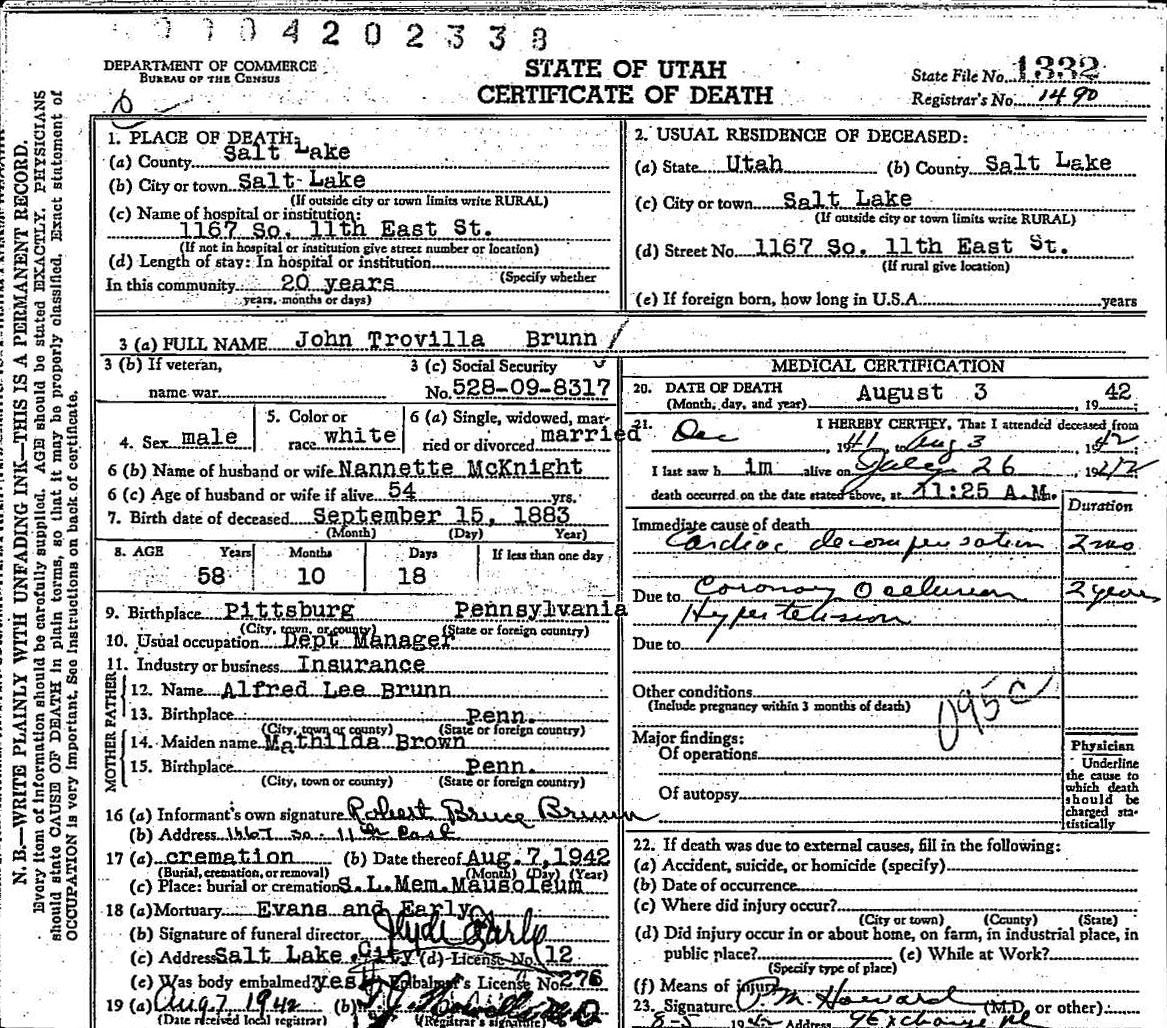 7 7 0 4 2 0 2 3 3 8
DEPARTMENT OF COMMERCE
BUREAU OF THE CENSUS
STATE OF UTAH
CERTIFICATE OF DEATH
State File No. 1332
Registrar's No. 1490
N. B.—WRITE PLAINLY WITH UNFADING INK—THIS IS A PERMANENT RECORD.
Every item of information should be carefully supplied. AGE should be stated EXACTLY. PHYSICIANS
should state CAUSE OF DEATH in plain terms, so that it may be properly classified. Exact statement of
OCCUPATION is very important. See instructions on back of certificate.
1. PLACE OF DEATH:
(a) County Salt Lake
(b) City or town Salt Lake
(If outside city or town limits write RURAL)
(c) Name of hospital or institution:
1167 So. 11th East St.
(If not in hospital or institution give street number or location)
(d) Length of stay: In hospital or institution
(Specify whether
In this community 20 years
years, months or days)
2. USUAL RESIDENCE OF DECEASED:
(a) State Utah (b) County Salt Lake
(c) City or town Salt Lake
(If outside city or town limits write RURAL)
(d) Street No. 1167 So. 11th East St.
(If rural give location)
(e) If foreign born, how long in U.S.A. years
3 (a) FULL NAME John Trovilla Brunn
3 (b) If veteran,
name war
3 (c) Social Security
No. 528-09-8317
4. Sex male
5. Color or
race white
6 (a) Single, widowed, mar-
ried or divorced married
6 (b) Name of husband or wife Nannette McKnight
6 (c) Age of husband or wife if alive 54 yrs.
7. Birth date of deceased September 15, 1883
(Month) (Day) Year)
8. AGE Years Months Days If less than one day
58 10 18
9. Birthplace Pittsburg Pennsylvania
(City, town, or county) (State or foreign country)
10. Usual occupation Dept Manager
11. Industry or business Insurance
FATHER
12. Name Alfred Lee Brunn
13. Birthplace Penn.
(City, town or county) (State or foreign country)
MOTHER
14. Maiden name Mathilda Brown
15. Birthplace Penn.
(City, town or county) (State or foreign country)
16 (a) Informant's own signature Robert Bruce Brunn
(b) Address 1167 So. 11th East
17 (a) cremation (b) Date thereof Aug. 7, 1942
(Burial, cremation, or removal) (Month) (Day) (Year)
(c) Place: burial or cremation S.L. Mem. Mausoleum
18 (a) Mortuary Evans and Early
(b) Signature of funeral director
(c) Address Salt Lake City (d) License No. 12
(e) Was body embalmed yes Embalmer's License No 276
19 (a) Aug 7 1942 (b) M.D.
(Date received local registrar) (Registrar's signature)
MEDICAL CERTIFICATION
20. DATE OF DEATH August 3 42
(Month, day, and year) , 19
21. I HEREBY CERTIFY, That I attended deceased from
Dec , 1941, Aug 3 , 1942
I last saw h im alive on July 26 , 1942
death occurred on the date stated above, at 11:25 A.M.
Duration
Immediate cause of death
Cardiac decompensation 2 mo
Due to Coronary Occlusion 2 years
Hypertension
Due to
Other conditions
(Include pregnancy within 3 months of death)
095c
Major findings:
Of operations
Of autopsy
Physician
Underline
the cause to
which death
should be
charged sta-
tistically
22. If death was due to external causes, fill in the following:
(a) Accident, suicide, or homicide (specify)
(b) Date of occurrence
(c) Where did injury occur?
(City or town) (County) (State)
(d) Did injury occur in or about home, on farm, in industrial place, in
public place? (e) While at Work?
(Specify type of place)
(f) Means of injury
23. Signature P M Howard (M.D. or other)
8-5 1942 Address 9 Exchange Pl